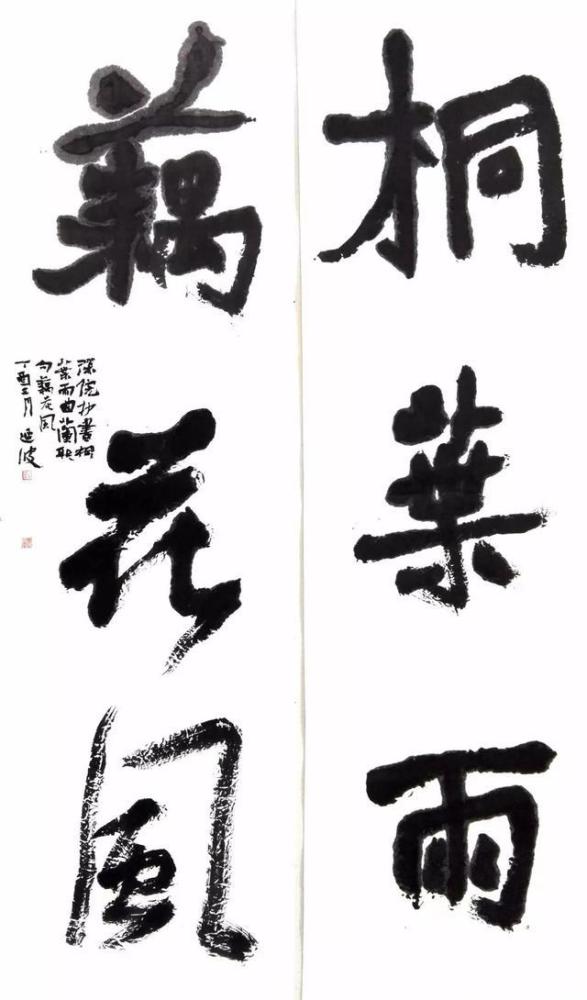 桐葉雨
藕花風
深院抄書桐
葉雨曲闌聯
句藕花風
丁酉三月 延波